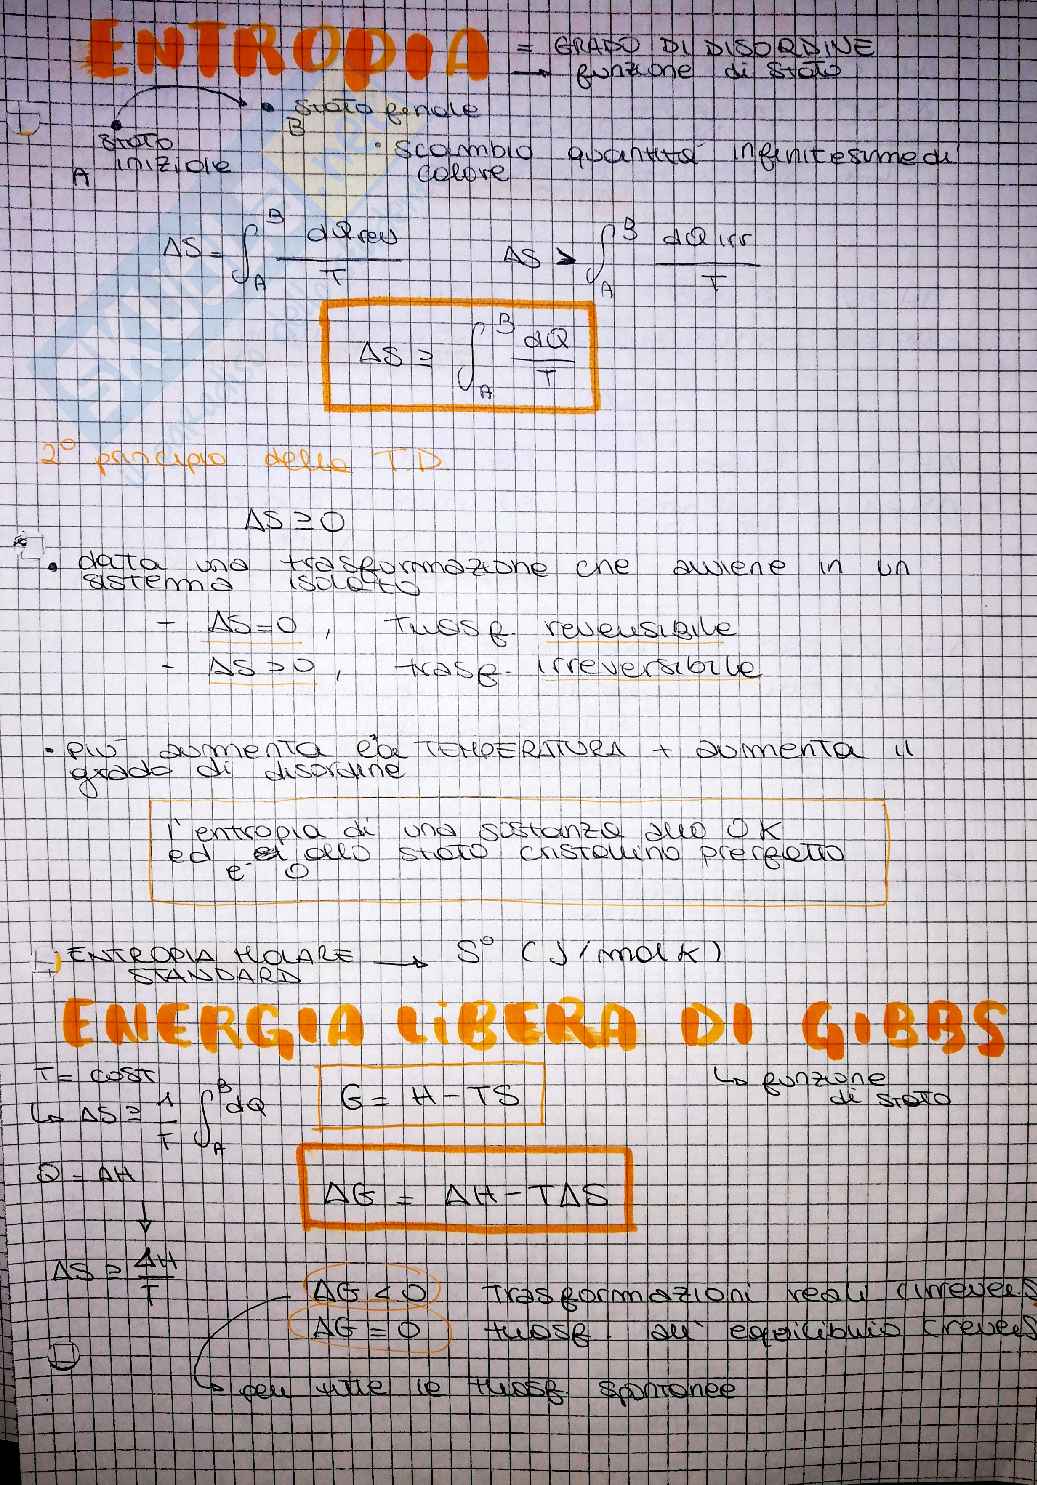 ENTROPIA = GRADO DI DISORDINE
→ funzione di stato
stato finale
B
stato
iniziale
A
• scambio quantità infinitesime di
calore
ΔS = ∫_A^B dQrev / T
ΔS > ∫_A^B dQirr / T
ΔS ≥ ∫_A^B dQ / T
2° principio della T.D.
ΔS ≥ 0
• data una trasformazione che avviene in un
sistema isolato
- ΔS=0, trasf. reversibile
- ΔS>0, trasf. irreversibile
• più aumenta la TEMPERATURA + aumenta il
grado di disordine
l'entropia di una sostanza allo 0K
ed allo stato cristallino prerfetto
e' 0
ENTROPIA MOLARE → S° (J/molK)
STANDARD
ENERGIA LiBERA DI GIBBS
↳ funzione
di stato
T= cost
↳ ΔS ≥ 1/T ∫_A^B dQ
G = H-TS
Q = ΔH
↓
ΔG = ΔH-TΔS
ΔS ≥ ΔH/T
ΔG < 0 trasformazioni reali (irrevers
ΔG = 0 trasf. all' equilibrio (revers
↳ per tutte le trasf. spontanee